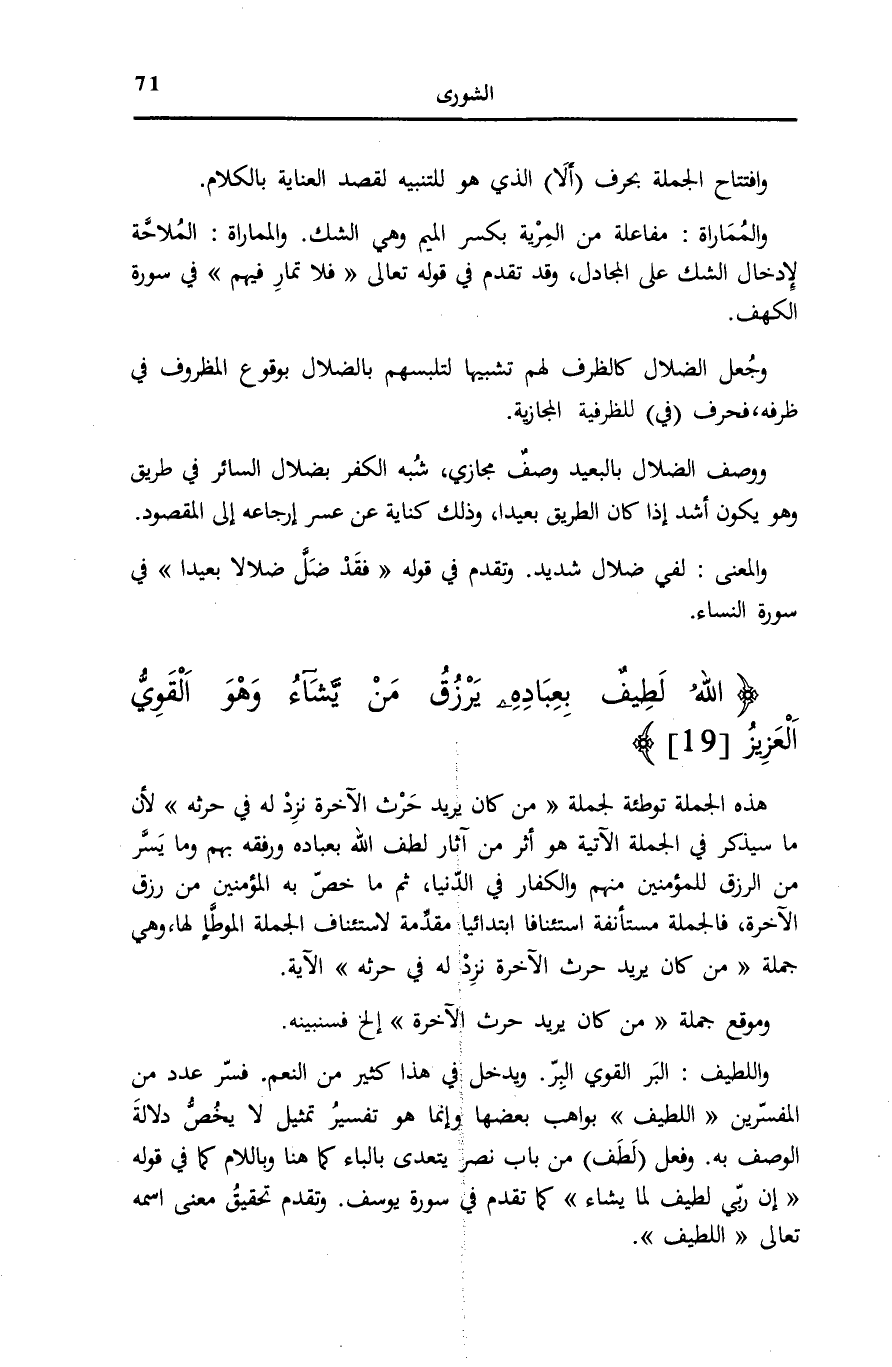 71
الشورى
وافتتاح الجملة بحرف (أَلَا) الذي هو للتنبيه لقصد العناية بالكلام.
والمُمَاراة : مفاعلة من المِرْية بكسر الميم وهي الشك. والمماراة : المُلاحَّة
لإِدخال الشك على المجادل، وقد تقدم في قوله تعالى « فلا تمارِ فيهم » في سورة
الكهف.
وجُعل الضلال كالظرف لهم تشبيها لتلبسهم بالضلال بوقوع المظروف في
ظرفه، فحرف (في) للظرفية المجازية.
ووصف الضلال بالبعيد وصفٌ مجازي، شُبه الكفر بضلال السائر في طريق
وهو يكون أشد إذا كان الطريق بعيدا، وذلك كناية عن عسر إرجاعه إلى المقصود.
والمعنى : لفي ضلال شديد. وتقدم في قوله « فقَدْ ضَلَّ ضلالا بعيدا » في
سورة النساء.
﴿ اللهُ لَطِيفٌ بِعِبَادِهِۦ يَرْزُقُ مَنْ يَّشَآءُ وَهْوَ اَلْقَوِيُّ
اَلْعَزِيزُ [19] ﴾
هذه الجملة توطئة لجملة « من كان يريد حَرْث الآخرة نزِدْ له في حرثه » لأن
ما سيذكر في الجملة الآتية هو أثر من آثار لطف الله بعباده ورفقه بهم وما يَسَّر
من الرزق للمؤمنين منهم والكفار في الدّنيا، ثم ما خصّ به المؤمنين من رزق
الآخرة، فالجملة مستأنفة استئنافا ابتدائيا مقدِّمة لاستئناف الجملة الموطَّإ لها، وهي
جملة « من كان يريد حرث الآخرة نزِدْ له في حرثه » الآية.
وموقع جملة « من كان يريد حرث الآخرة » إلخ فسنبينه.
واللطيف : البَر القوي البِرّ. ويدخل في هذا كثير من النعم. فسّر عدد من
المفسّرين « اللطيف » بواهب بعضها وإنما هو تفسيرُ تمثيل لا يخُصُّ دلالةَ
الوصف به. وفعل (لَطَف) من باب نصر يتعدى بالباء كما هنا وباللام كما في قوله
« إن ربّي لطيف لما يشاء » كما تقدم في سورة يوسف. وتقدم تحقيقُ معنى اسمه
تعالى « اللطيف ».